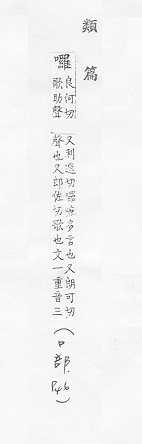 類篇
囉
良何切
歌助聲
又利遮切囉嗻多言也又朗可切
聲也又郎佐切歌也文一重音三
(口部. P46)